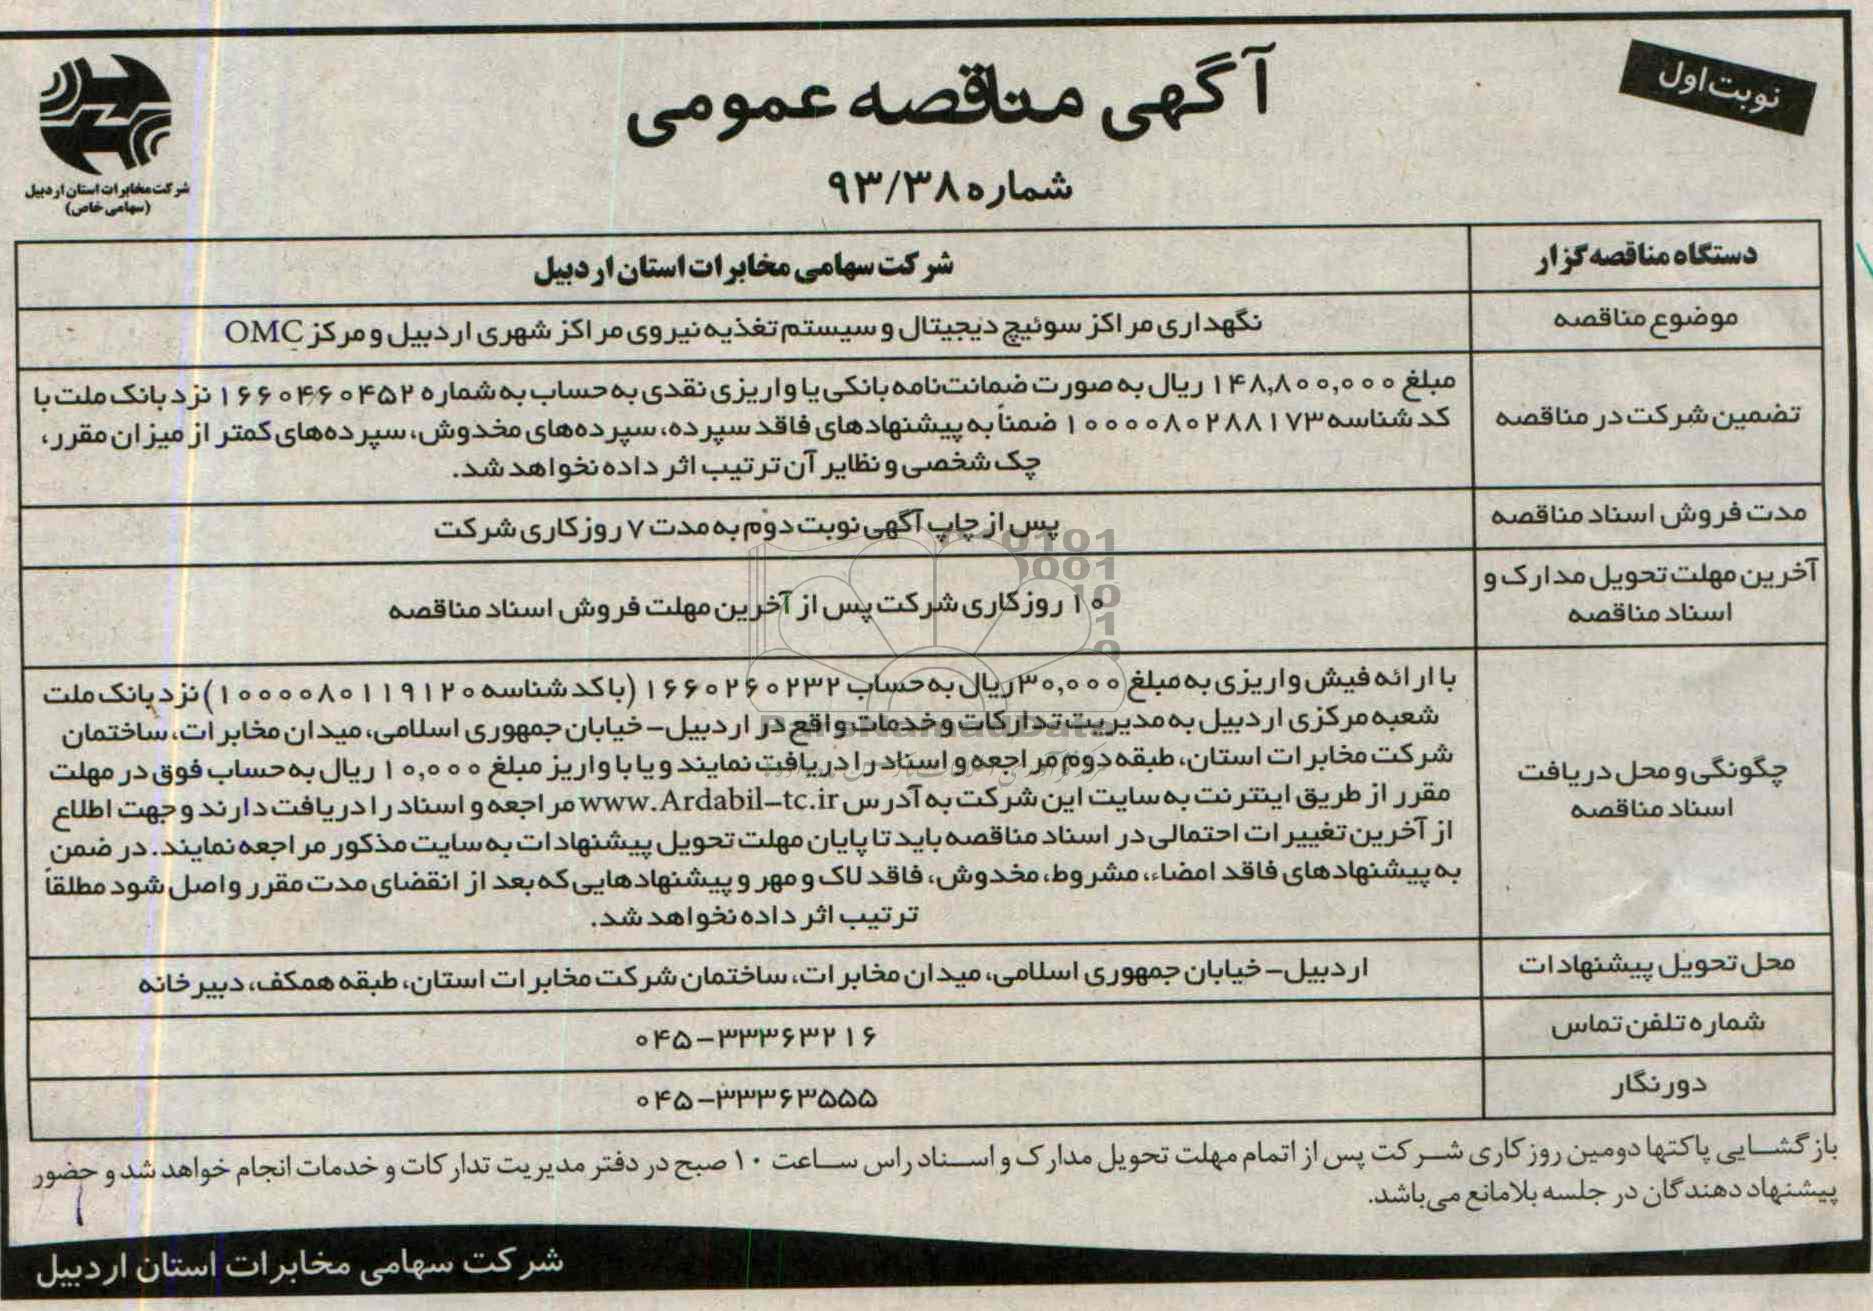 نوبت اول
آگهی مناقصه عمومی
شماره ۹۳/۳۸
شرکت مخابرات استان اردبیل
(سهامی خاص)
دستگاه مناقصه گزار
شرکت سهامی مخابرات استان اردبیل
موضوع مناقصه
نگهداری مراکز سوئیچ دیجیتال و سیستم تغذیه نیروی مراکز شهری اردبیل و مرکز OMC
تضمین شرکت در مناقصه
مبلغ ۱۴۸,۸۰۰,۰۰۰ ریال به صورت ضمانت‌نامه بانکی یا واریزی نقدی به حساب به شماره ۱۶۶۰۴۶۰۴۵۲ نزد بانک ملت با
کد شناسه ۱۰۰۰۰۸۰۲۸۸۱۷۳ ضمناً به پیشنهادهای فاقد سپرده، سپرده‌های مخدوش، سپرده‌های کمتر از میزان مقرر،
چک شخصی و نظایر آن ترتیب اثر داده نخواهد شد.
مدت فروش اسناد مناقصه
پس از چاپ آگهی نوبت دوم به مدت ۷ روز کاری شرکت
آخرین مهلت تحویل مدارک و
اسناد مناقصه
۱۰ روز کاری شرکت پس از آخرین مهلت فروش اسناد مناقصه
چگونگی و محل دریافت
اسناد مناقصه
با ارائه فیش واریزی به مبلغ ۳۰,۰۰۰ ریال به حساب ۱۶۶۰۲۶۰۲۳۲ (با کد شناسه ۱۰۰۰۰۸۰۱۱۹۱۲۰) نزد بانک ملت
شعبه مرکزی اردبیل به مدیریت تدارکات و خدمات واقع در اردبیل – خیابان جمهوری اسلامی، میدان مخابرات، ساختمان
شرکت مخابرات استان، طبقه دوم مراجعه و اسناد را دریافت نمایند و یا با واریز مبلغ ۱۰,۰۰۰ ریال به حساب فوق در مهلت
مقرر از طریق اینترنت به سایت این شرکت به آدرس www.Ardabil–tc.ir مراجعه و اسناد را دریافت دارند و جهت اطلاع
از آخرین تغییرات احتمالی در اسناد مناقصه باید تا پایان مهلت تحویل پیشنهادات به سایت مذکور مراجعه نمایند. در ضمن
به پیشنهادهای فاقد امضاء، مشروط، مخدوش، فاقد لاک و مهر و پیشنهادهایی که بعد از انقضای مدت مقرر واصل شود مطلقاً
ترتیب اثر داده نخواهد شد.
محل تحویل پیشنهادات
اردبیل – خیابان جمهوری اسلامی، میدان مخابرات، ساختمان شرکت مخابرات استان، طبقه همکف، دبیرخانه
شماره تلفن تماس
۰۴۵–۳۳۳۶۳۲۱۶
دورنگار
۰۴۵–۳۳۳۶۳۵۵۵
بازگشایی پاکتها دومین روز کاری شرکت پس از اتمام مهلت تحویل مدارک و اسناد راس ساعت ۱۰ صبح در دفتر مدیریت تدارکات و خدمات انجام خواهد شد و حضور
پیشنهاد دهندگان در جلسه بلامانع می‌باشد.
شرکت سهامی مخابرات استان اردبیل